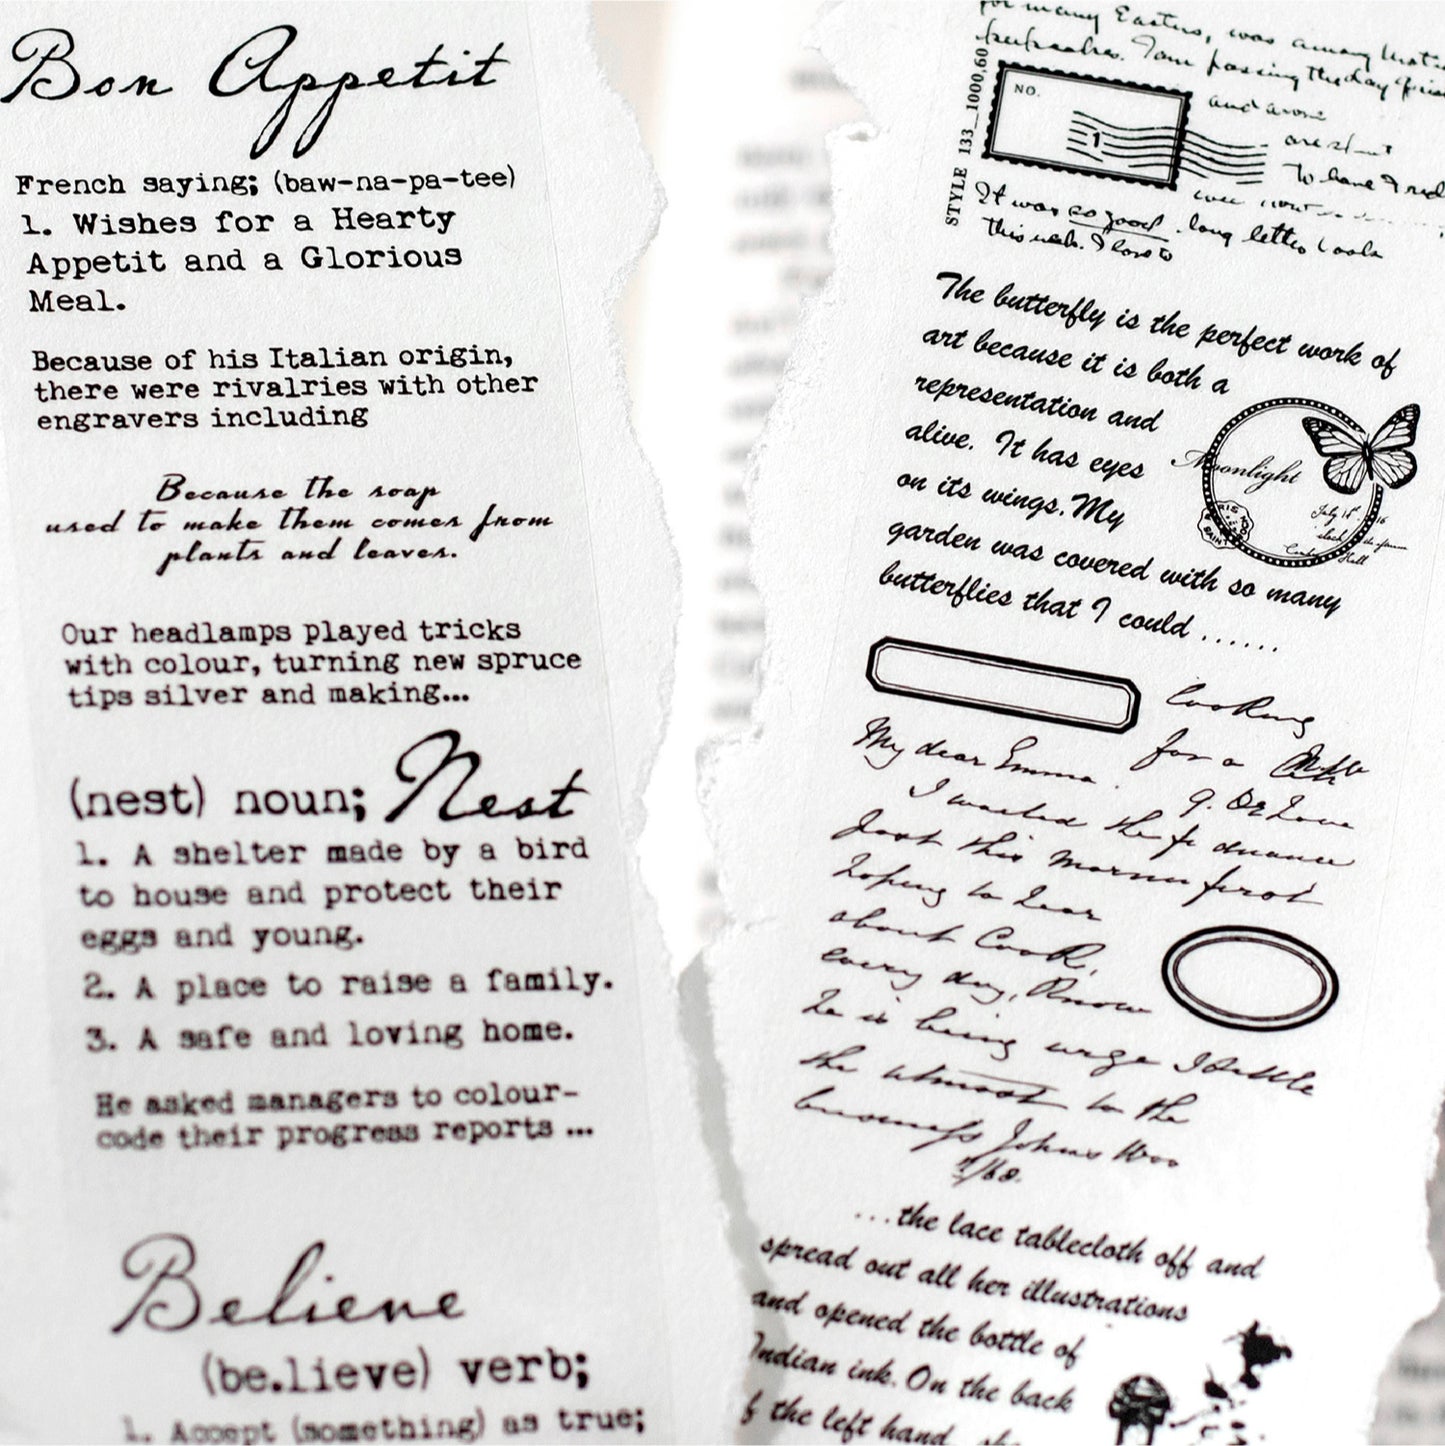 Bon Appetit
French saying; (baw-na-pa-tee)
1. Wishes for a Hearty
Appetit and a Glorious
Meal.
Because of his Italian origin,
there were rivalries with other
engravers including
Because the soap
used to make them comes from
plants and leaves.
Our headlamps played tricks
with colour, turning new spruce
tips silver and making...
(nest) noun; Nest
1. A shelter made by a bird
to house and protect their
eggs and young.
2. A place to raise a family.
3. A safe and loving home.
He asked managers to colour-
code their progress reports ...
Believe
(be.lieve) verb;
1. Accept (something) as true;
for many Easters, was among
I am passing the day
NO.
1
STYLE 133_1000,60
and
are
to have I
It was so good. long letter
this week. I love to
The butterfly is the perfect work of
art because it is both a
representation and
alive. It has eyes
on its wings. My
garden was covered with so many
butterflies that I could ......
Moonlight
July
Hall
looking
for a
My dear Emma.
I wanted the
Just this morning first
hoping to hear
about Cook,
every day, know
he is being urge
the utmost to the
business Johns Woo
...the lace tablecloth off and
spread out all her illustrations
and opened the bottle of
Indian ink. On the back
f the left hand